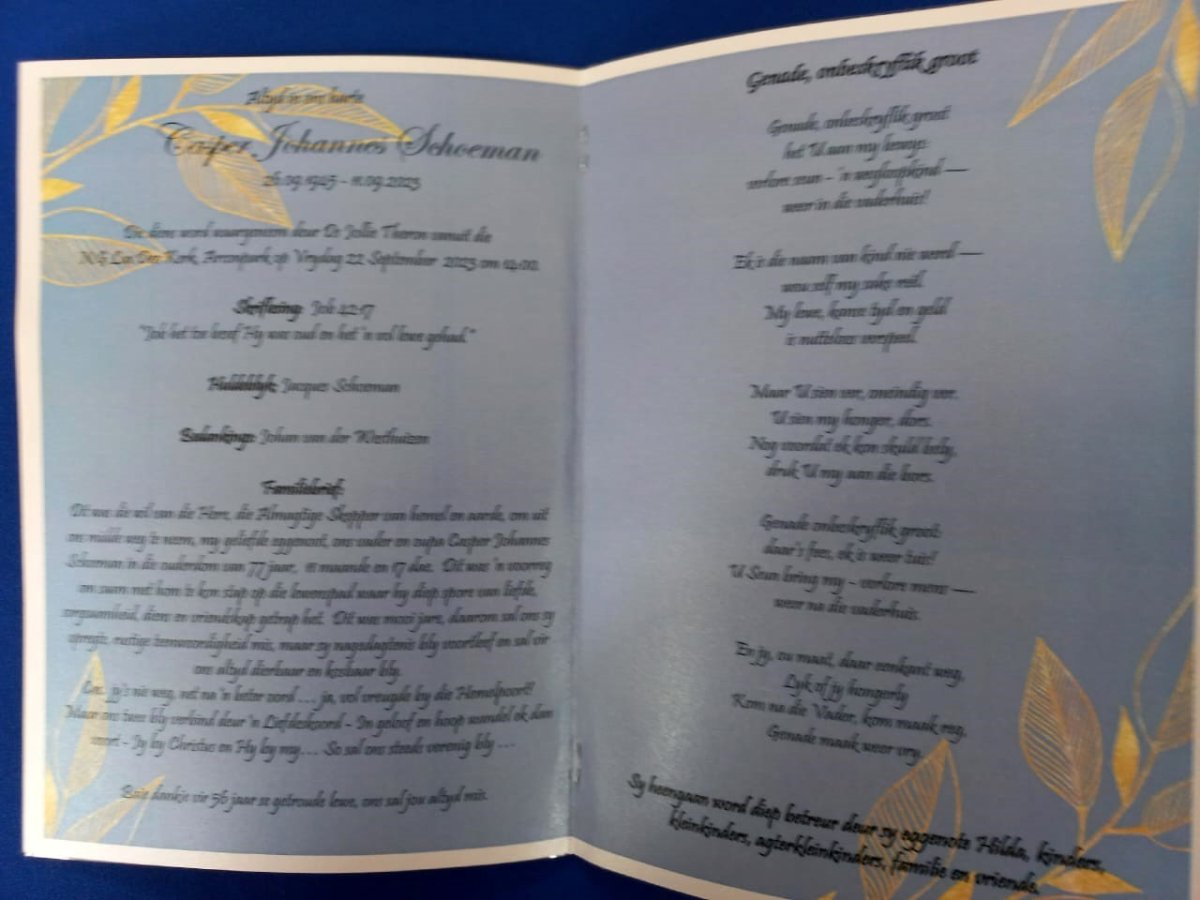 Altyd in ons harte
Casper Johannes Schoeman
26.09.1945 - 11.09.2023
Dié diens word waargeneem deur Ds Jollie Theron vanuit die
NG Kerk, op Vrydag 22 September 2023 om 14:00.
Skriflesing: Job 42:17
"Job het toe hy was oud en het 'n vol lewe gehad."
Huldeblyk: Jacques Schoeman
Bedankings: Johan van der Westhuizen
Familiebrief:
Dit was die wil van die Here, die Almagtige Skepper van hemel en aarde, om uit
ons midde weg te neem, my geliefde eggenoot, ons vader en oupa Casper Johannes
Schoeman in die ouderdom van 77 jaar, 11 maande en 17 dae. Dit was 'n voorreg
om saam met hom te kon stap op die lewenspad waar hy diep spore van liefde,
sorgsaamheid, diens en vriendskap getrap het. Dit was mooi jare, daarom sal ons sy
opregte, rustige teenwoordigheid mis, maar sy nagedagtenis bly voortleef en sal vir
ons altyd dierbaar en kosbaar bly.
jy's nie weg, net na 'n beter oord .... ja, vol vreugde by die Hemelpoort!
Maar ons twee bly verbind deur 'n Liefdeskoord - In geloof en hoop wandel ek dan
voort - Jy by Christus en Hy by my.... So sal ons steeds verenig bly ...
Baie dankie vir 56 jaar se getroude lewe, ons sal jou altyd mis.
Genade, onbeskryflik groot
Genade, onbeskryflik groot
het U aan my bewys:
verlore seun - 'n wegloopkind —
weer in die vaderhuis!
Ek is die naam van kind nie werd —
wou self my sake reël.
My lewe, kanse tyd en geld
is nutteloos verspeel.
Maar U sien ver, oneindig ver.
U sien my honger, dors.
Nog voordat ek kom skuld bely,
druk U my aan die bors.
Genade onbeskryflik groot:
daar's fees, ek is weer tuis!
U Seun bring my - verlore mens —
weer na die vaderhuis.
En jy, ou maat, daar oorkant weg,
Lyk of jy hongerly
Kom na die Vader, kom maak reg.
Genade maak weer vry.
Sy heengaan word diep betreur deur sy eggenote Hilda, kinders,
kleinkinders, agterkleinkinders, familie en vriende.